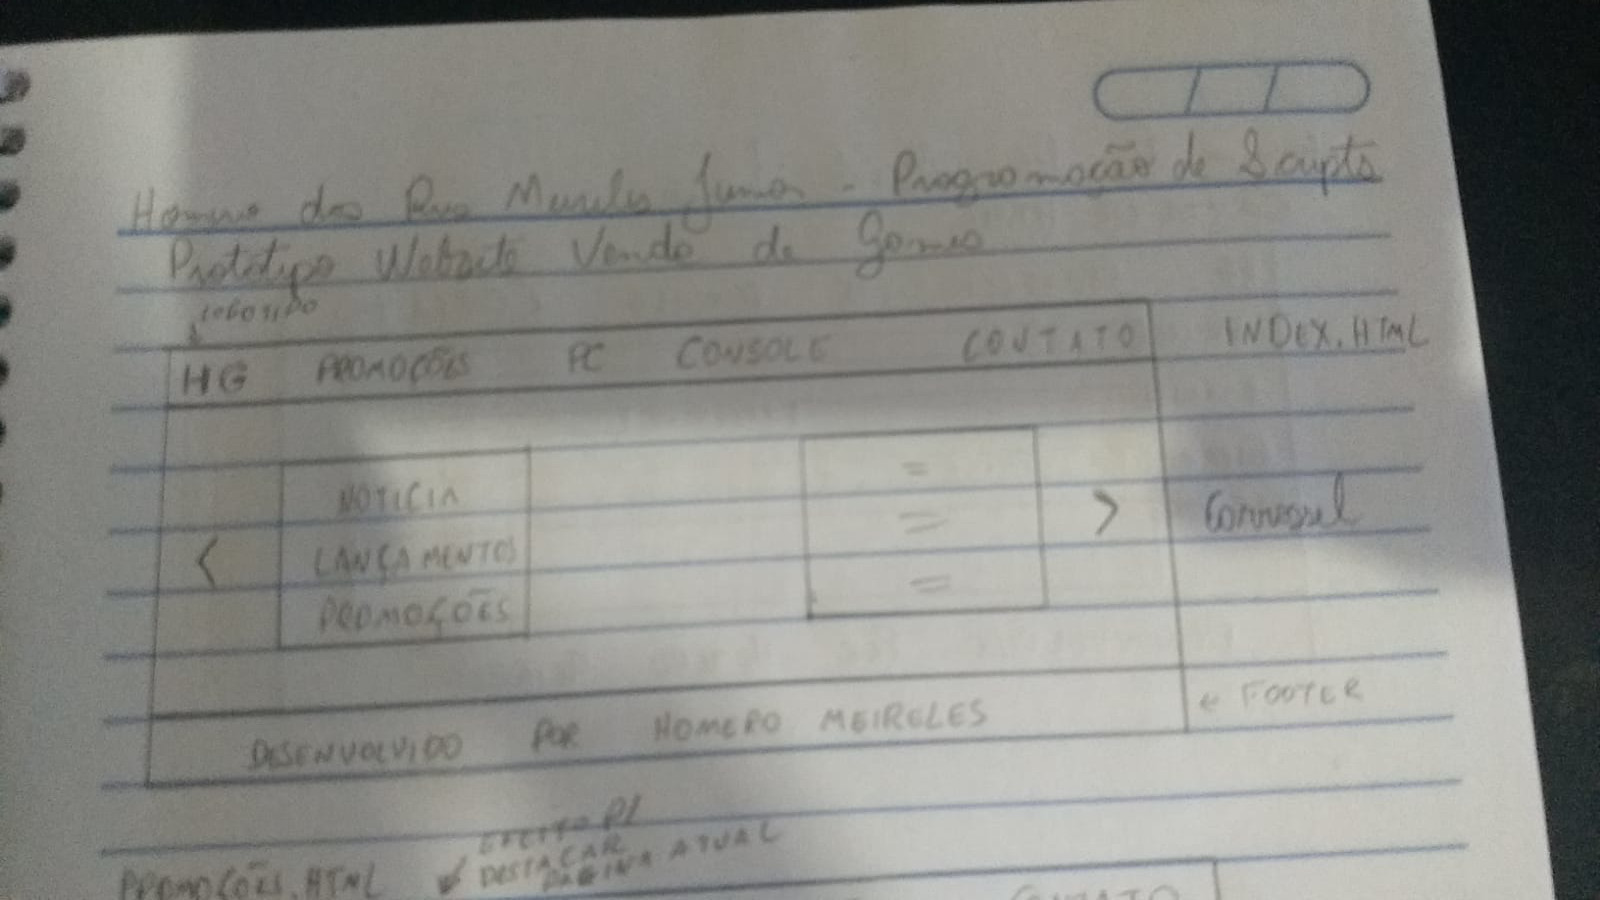 Homero dos Reis Meireles Junior - Programação de Scripts
Prototipo Website Venda de Games
LOGOTIPO
HG PROMOÇÕES PC CONSOLE CONTATO INDEX.HTML
NOTICIA
LANÇAMENTOS
PROMOÇÕES
< = = = > Carrousel
DESENVOLVIDO POR HOMERO MEIRELES ← FOOTER
EFEITO P/
DESTACAR
PÁGINA ATUAL
PROMOÇÕES.HTML
CONTATO